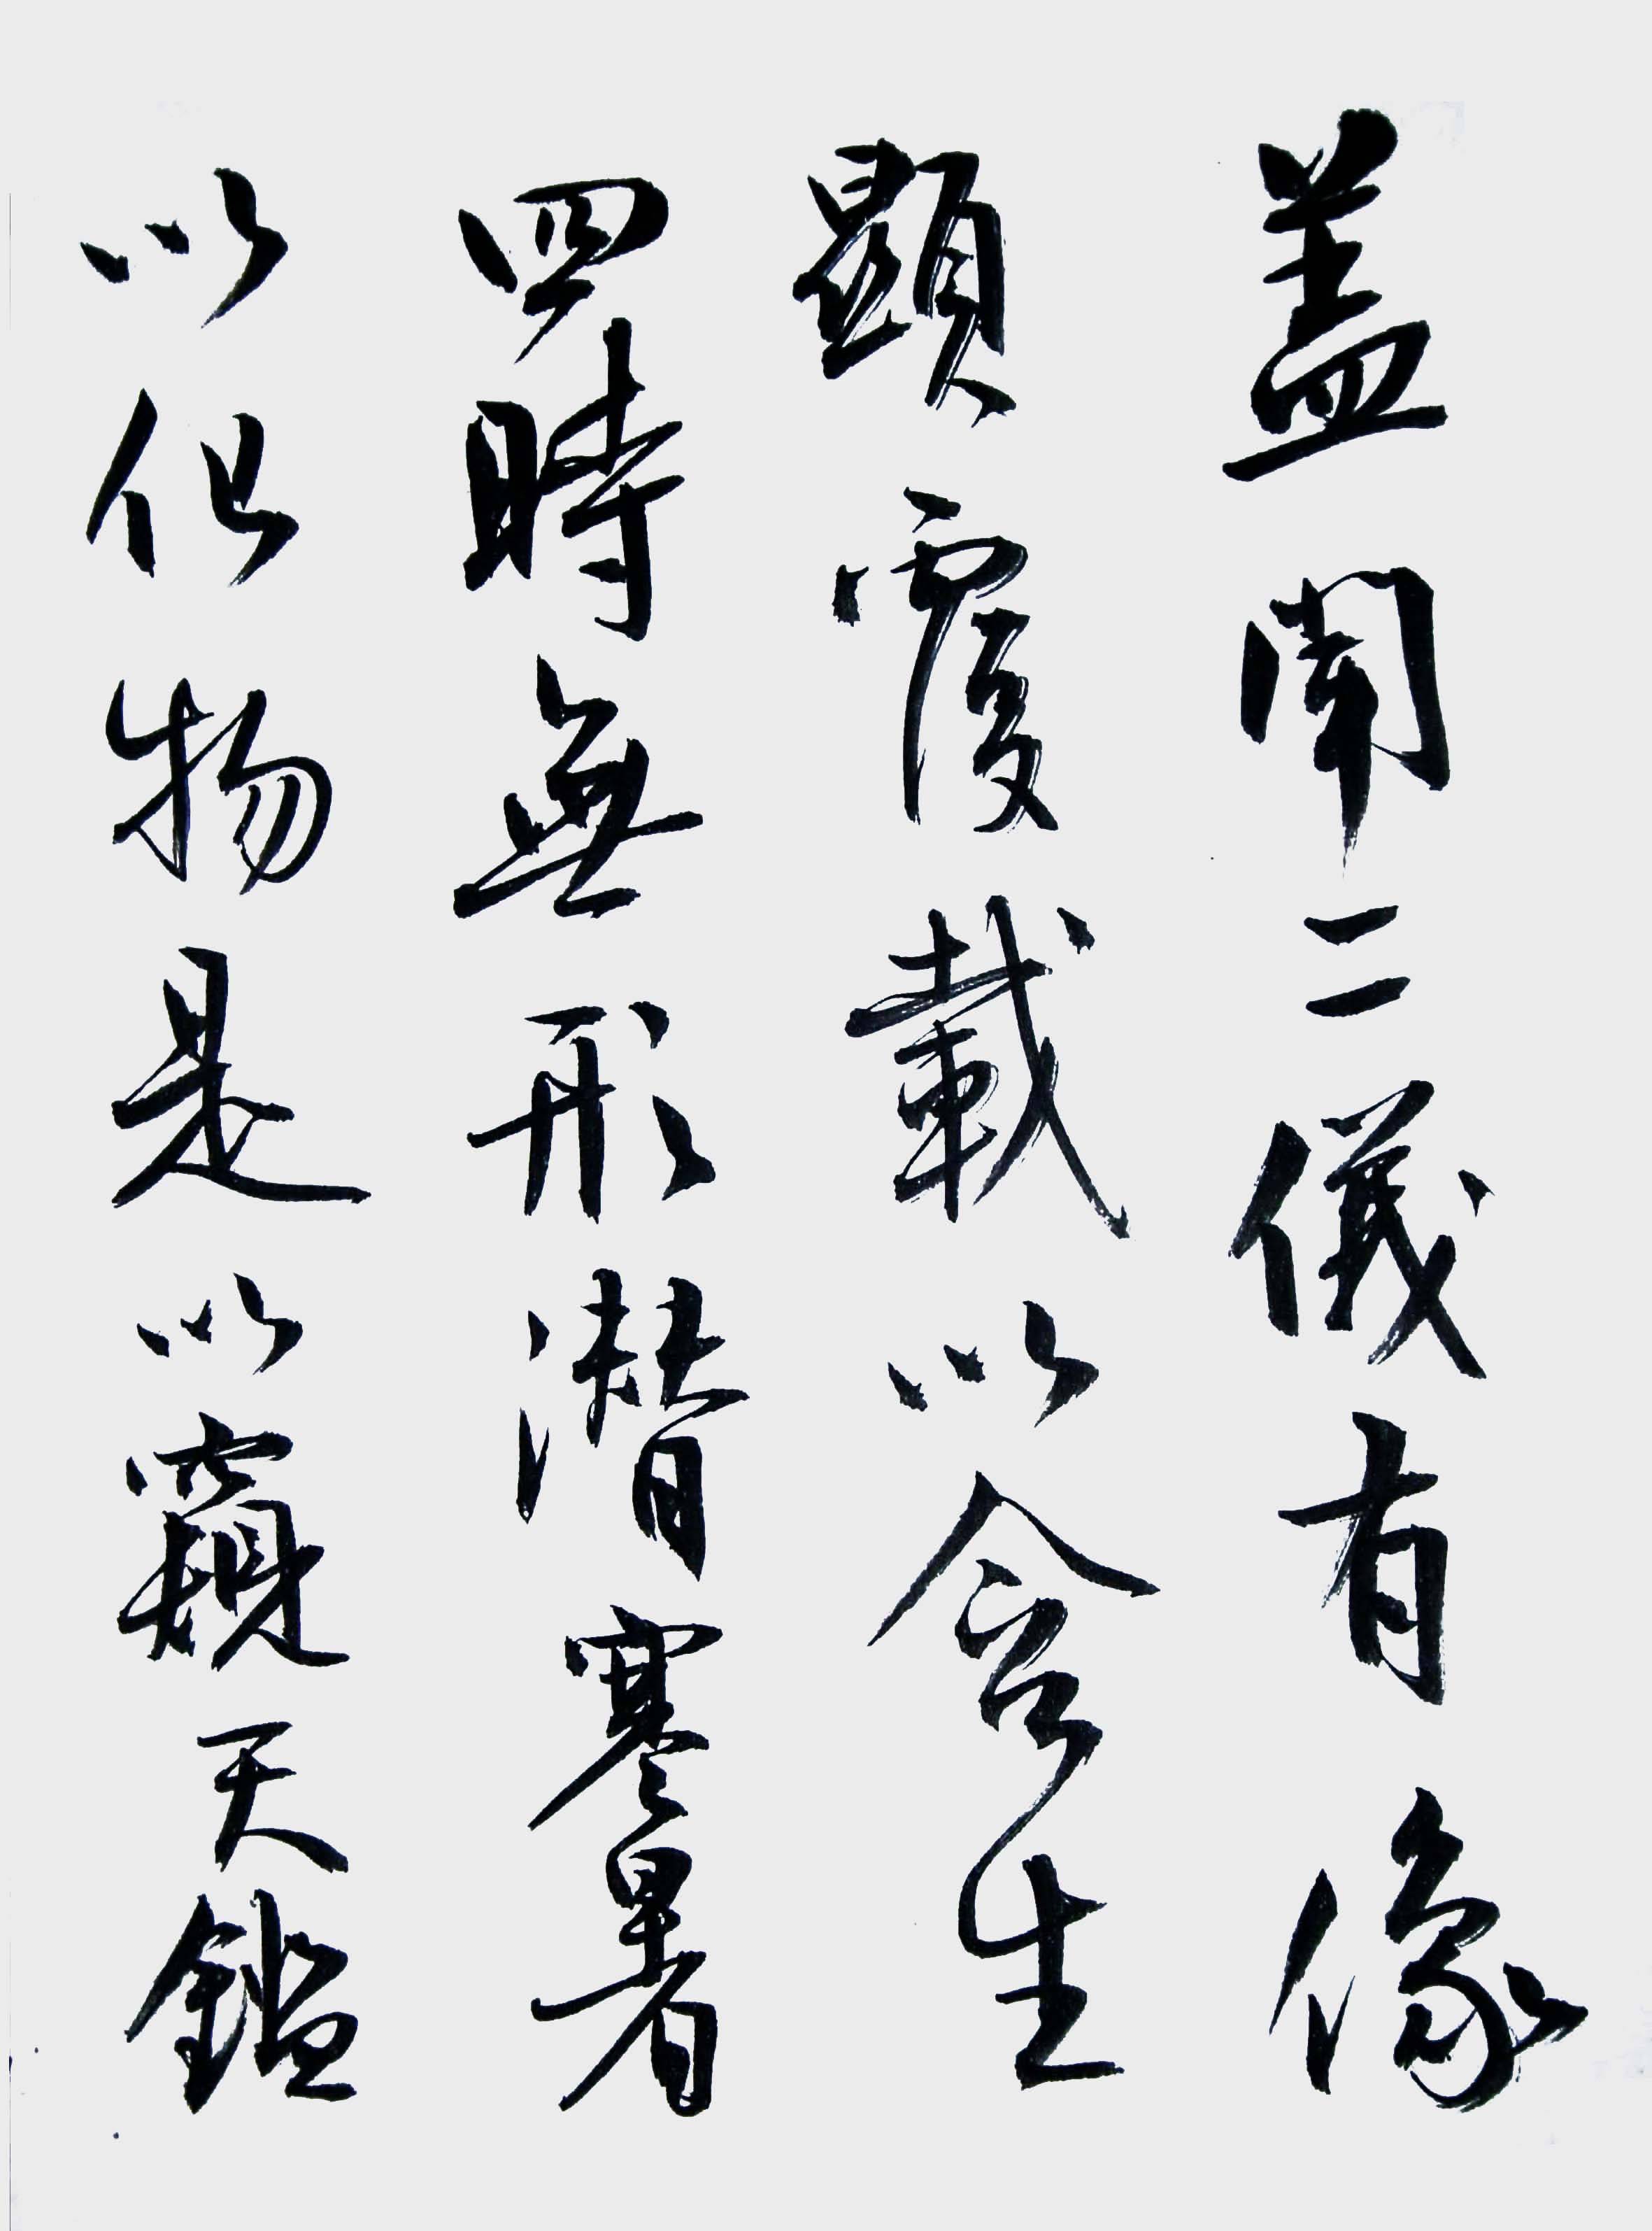 蓋聞二儀有像
顯覆載以含生
四時無形潛寒暑
以化物是以窺天鑑